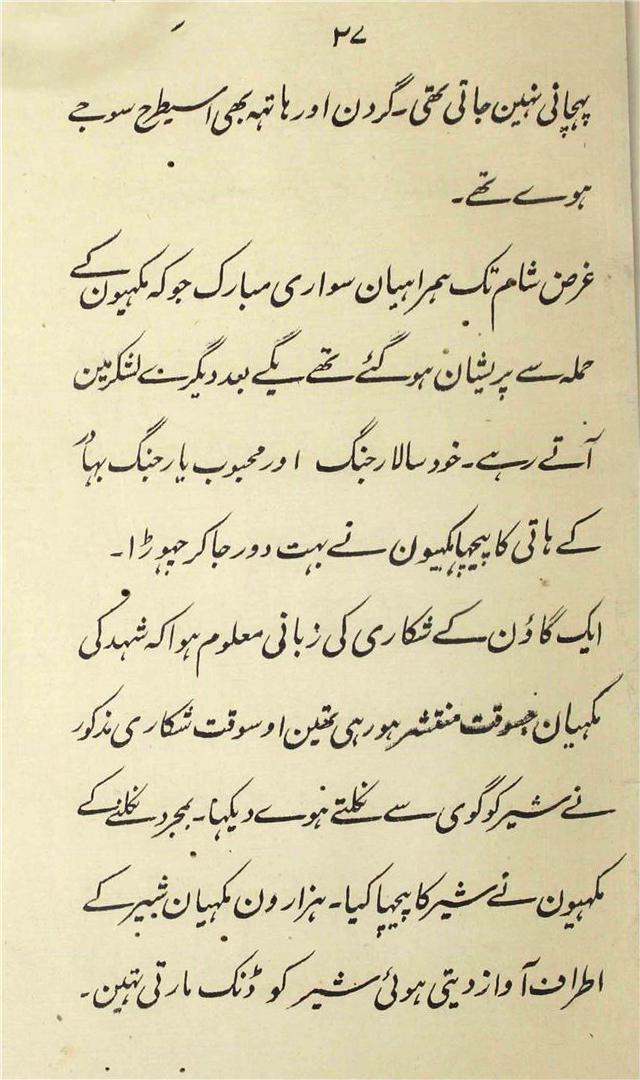 ۳۷
پہچانی نہین جاتی تھی۔ گردن اور ہاتہہ بھی اسیطرح سوجے
ہوے تھے۔
غرض شام تک ہمراہیان سواری مبارک جوکہ مکہیون کے
حملہ سے پریشان ہوگئے تھے یگے بعد دیگرے لشکر مین
آتے رہے۔ خود سالار جنگ اور محبوب یار جنگ بہادر
کے ہاتی کا پیچہا مکہیون نے بہت دور جاکر چہوڑا۔
ایک گاؤن کے شکاری کی زبانی معلوم ہوا کہ شہد کی
مکہیان جسوقت منتشر ہو رہی تہین اوسوقت شکاری مذکور
نے شیر کو گوی سے نکلتے ہوے دیکہا۔ بمجرد نکلنے کے
مکہیون نے شیر کا پیچہا کیا۔ ہزارون مکہیان شیر کے
اطراف آواز دیتی ہوئی شیر کو ڈنک مارتی تہین۔